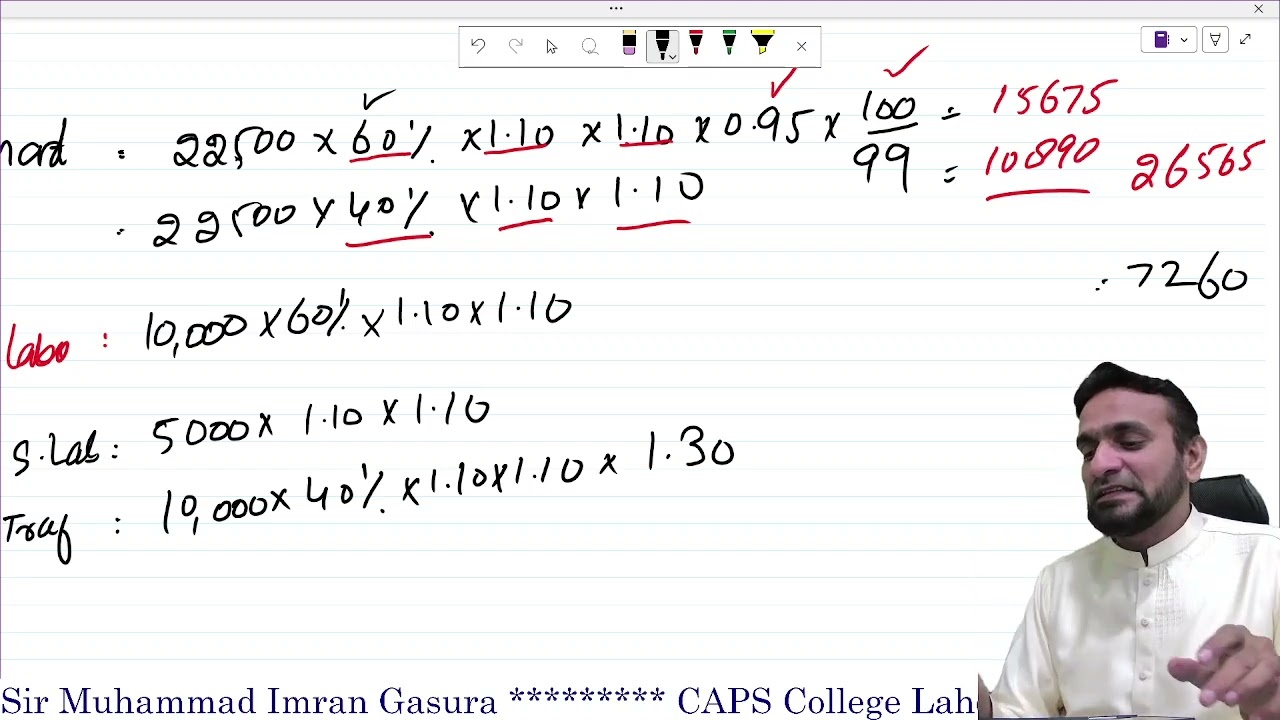 : 22,500 × 60% × 1.10 × 1.10 × 0.95 × 100/99 = 15675
: 22500 × 40% × 1.10 × 1.10 = 10890 26565
: 7260
Labo : 10,000 × 60% × 1.10 × 1.10
S.Lab : 5000 × 1.10 × 1.10
Traf : 10,000 × 40% × 1.10 × 1.10 × 1.30
Sir Muhammad Imran Gasura ********* CAPS College Lah